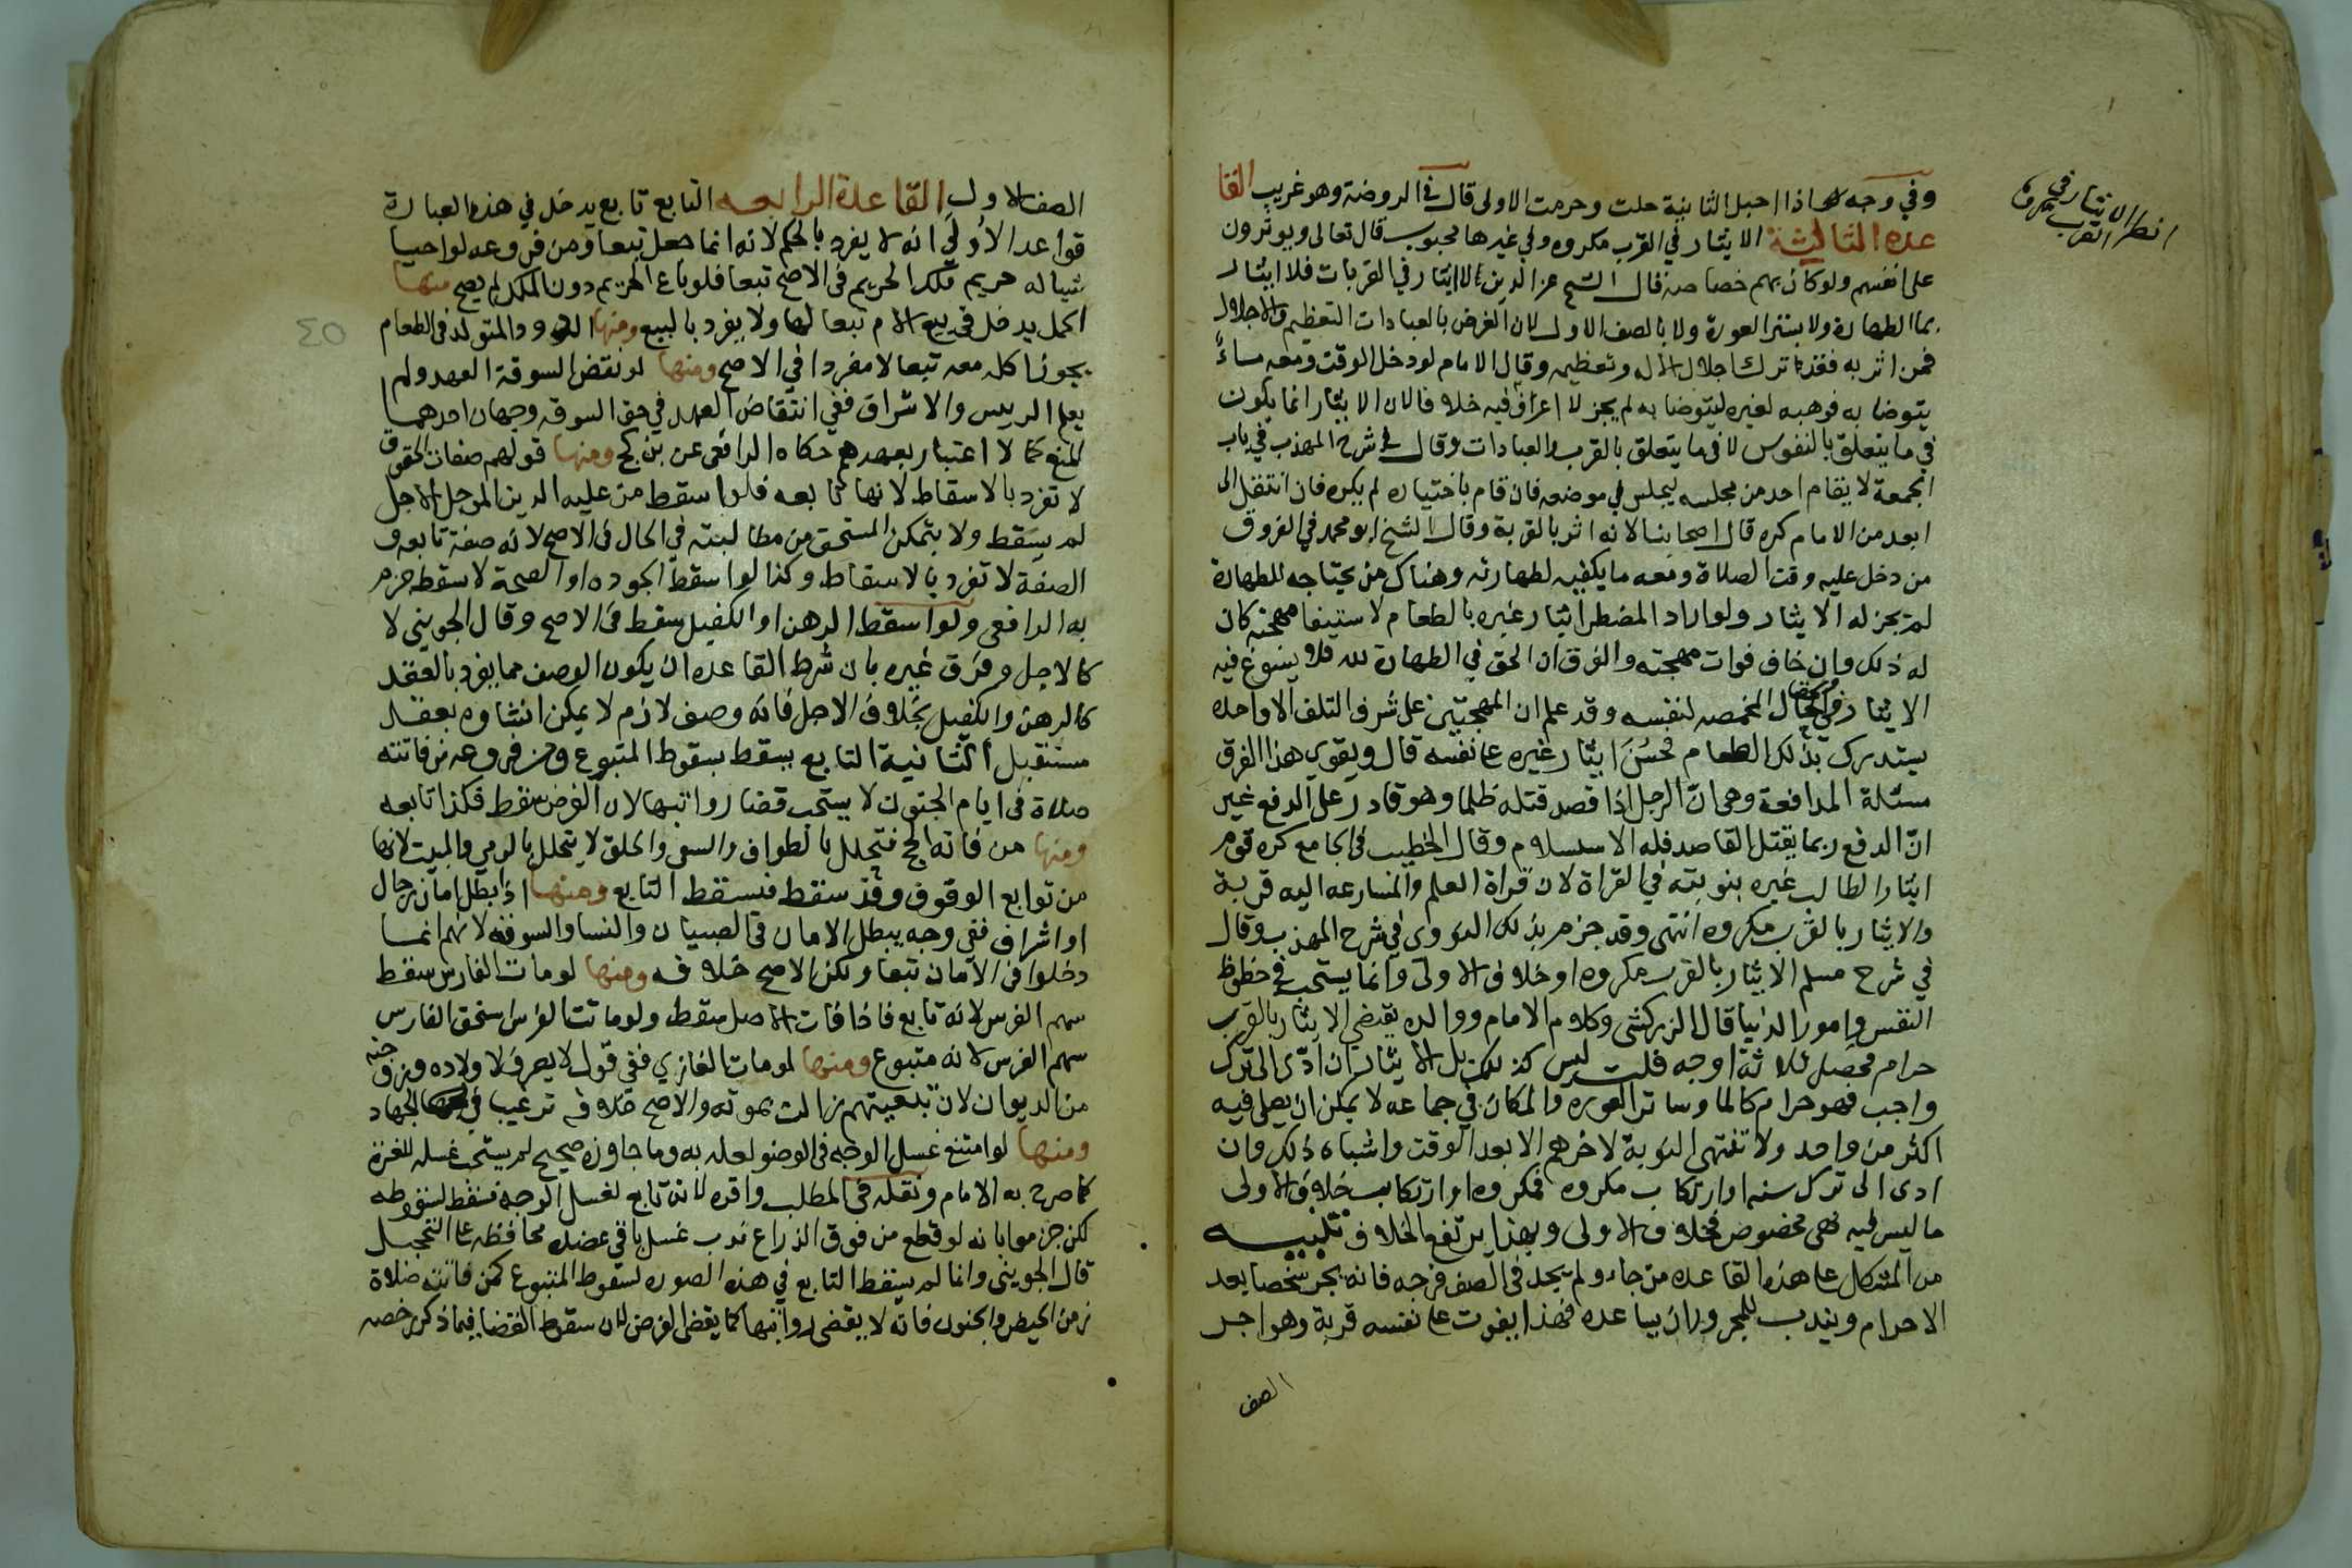 وفي وجه اذا احبل الثانية حلت وحرمت الاولى قال في الروضة وهو غريب القا
عدة الثالثة الايثار في القرب مكروه وفي غيرها محبوب قال تعالى ويوثرون
على انفسهم ولو كان بهم خصاصة فقال الشيخ عز الدين لا ايثار في القربات فلا ايثار
بما الطهارة ولا بستر العورة ولا بالصف الاول لان الغرض بالعبادات التعظيم والاجلال
فمن اثر به فقد ترك اجلال الاله وتعظيمه وقال الامام لو دخل الوقت ومعه ماءً
يتوضا به فوهبه لغيره ليتوضا به لم يجز لا اعرف فيه خلافا لان الايثار انما يكون
في ما يتعلق بالنفوس لا في ما يتعلق بالقرب والعبادات وقال في شرح المهذب في باب
الجمعة لا يقام احد من مجلسه ليجلس في موضعه فان قام باختياره لم يكره فان انتقل الى
ابعد من الامام كره قال اصحابنا لانه اثر بالقربة وقال الشيخ ابو محمد في الفروق
من دخل عليه وقت الصلاة ومعه ما يكفيه لطهارته وهناك من يحتاجه للطهارة
لم يجز له الايثار ولو اراد المضطر ايثار غيره بالطعام لاستبقا مهجته كان
له ذلك وان خاف فوات مهجته والفرق ان الحق في الطهارة لله فلا يسوغ فيه
الايثار والحق في حال المخمصه لنفسه وقد علم ان المهجتين على شرف التلف الا واحده
يستدرك بذلك الطعام فحَسُنَ ايثار غيره على نفسه قال ويقوي هذا الفرق
مسئلة المدافعة وهي ان الرجل اذا قصد قتله ظلما وهو قادر على الدفع غير
انّ الدفع ربما يقتل القاصد فله الاستسلام وقال الخطيب في الجامع كره قوم
ايثار الطالب غيره بنوبته في القراة لان قراة العلم والمسارعه اليه قربة
والايثار بالقرب مكروه انتهى وقد جزم بذلك النووى في شرح المهذب وقال
في شرح مسلم الايثار بالقرب مكروه او خلاف الاولى وانما يستحب في حظوظ
النفس وامور الدنيا قال الزركشى وكلام الامام ووالده يقتضي الايثار بالقرب
حرام فحصل ثلاثة اوجه قلت ليس كذلك بل الايثار ان ادّى الى ترك
واجب فهو حرام كالما وساتر العوره والمكان في جماعه لا يمكن ان يصلى فيه
اكثر من واحد ولا تنتهى النوبة لاخرهم الا بعد الوقت واشباه ذلك وان
ادى الى ترك سنه او ارتكاب مكروه فمكروه او ارتكاب خلاف الاولى
ما ليس فيه نهى مخصوص فخلاف الاولى وبهذا يرتفع الخلاف تنبيه
من المشكل على هذه القاعده من جاء ولم يجد في الصف فرجه فانه يجر شخصا بعد
الاحرام ويندب للمجرور ان يساعده فهذا يفوت على نفسه قربة وهو اجر
الصف
انظر الايثار في
القرب
الصف الاول القاعدة الرابعه التابع تابع يدخل في هذه العبارة
قواعد الاُولى انه لا يفرد بالحكم لانه انما جعل تبعا ومن فروعه لو احيا
شيا له حريم ملك الحريم في الاصح تبعا فلو باع الحريم دون الملك لم يصح منها
الحمل يدخل في بيع الام تبعا لها ولا يفرد بالبيع ومنها الدود المتولد في الطعام
يجوز اكله معه تبعا لا مفردا في الاصح ومنها لو نقض السوقة العهد ولم
يعلم الرييس والاشراق ففي انتقاض العهد في حق السوقه وجهان احدهما
المنع كما لا اعتبار بعهدهم حكاه الرافعى عن بن كج ومنها قولهم صفات الحقوق
لا تفرد بالاسقاط لانها تابعه فلو اسقط من عليه الدين الموجل الاجل
لم يسقط ولا يتمكن المستحق من مطالبته في الحال في الاصح لانه صفة تابعه و
الصفة لا تفرد بالاسقاط وكذا لو اسقط الجوده او الصحة لا سقط جزم
به الرافعي ولو اسقط الرهن او الكفيل سقط في الاصح وقال الجوينى لا
كالاجل وفرق غيره بان شرط القاعده ان يكون الوصف مما يفرد بالعقد
كالرهن والكفيل بخلاف الاجل فانه وصف لازم لا يمكن انشاوه بعقد
مستقبل الثانية التابع يسقط بسقوط المتبوع ومن فروعه من فاتته
صلاة في ايام الجنون لا يستحب قضا رواتبها لان الفرض سقط فكذا تابعه
ومنها من فاته الحج فتحلل بالطواف والسعى والحلق لا يتحلل بالرمي والمبيت لانها
من توابع الوقوف وقد سقط فتسقط التابع ومنها اذا بطل امان رجال
او اشراف ففي وجه يبطل الامان في الصبيان والنسا والسوقه لانهم انما
دخلوا في الامان تبعا ولكن الاصح خلافه ومنها لو مات الفارس سقط
سهم الفرس لانه تابع فاذا فات الاصل سقط ولو ماتت الفرس استحق الفارس
سهم الفرس لانه متبوع ومنها لو مات الغازي ففي قول لا يصرف لاولاده وزوجته
من الديوان لان تبعيتهم زالت بموته والاصح خلافه ترغيبا في الجهاد
ومنها لو امتنع غسل الوجه في الوضو لعله به وما جاوزه صحيح لم يستحب غسله للغرة
كما صرح به الامام ونقله في المطلب واقره لانه تابع لغسل الوجه فسقط لسقوطه
لكن جزموا بانه لو قطع من فوق الذراع ندب غسل باقي عضده محافظه على التحجيل
قال الجوينى وانما لم يسقط التابع في هذه الصوره لسقوط المتبوع كمن فاتته صلاة
زمن الحيض والجنون فانه لا يقضى رواتبها كما يقضى الفرض لان سقوط القضا فيما ذكر رخصه
٤٥